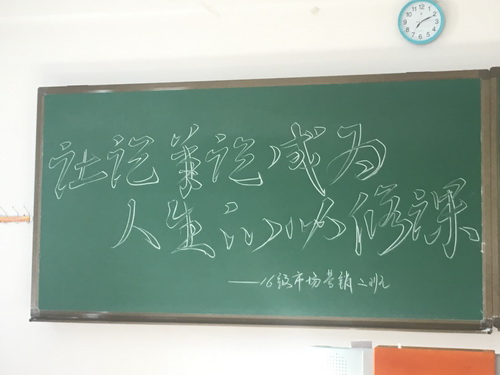 让说说成为
人生的必修课
——16级市场营销二班